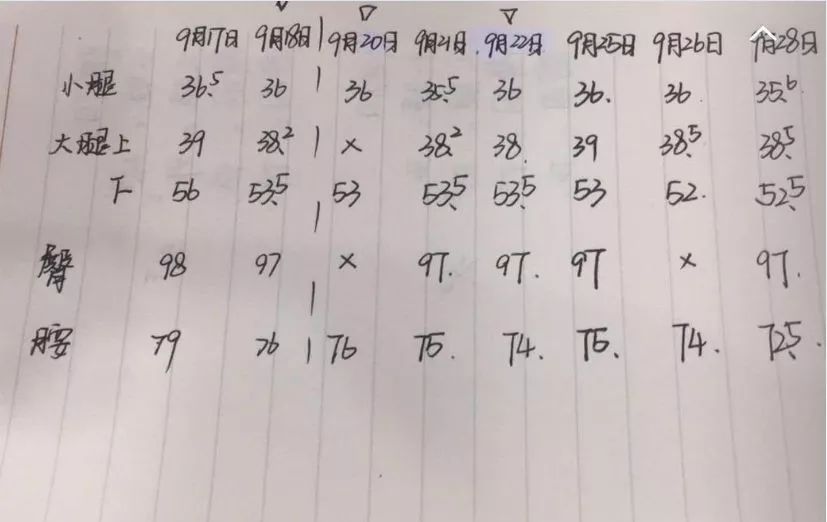 9月17日 9月18日 9月20日 9月21日 9月22日 9月25日 9月26日 月28日
小腿 36.5 36 36 35.5 36 36. 36. 35.6
大腿上 39 38.2 × 38.2 38. 39 38.5 38.5
下 56 53.5 53 53.5 53.5 53 52. 52.5
臀 98 97 × 97. 97. 97 × 97.
腰 79 76 76 75. 74. 75. 74. 72.5